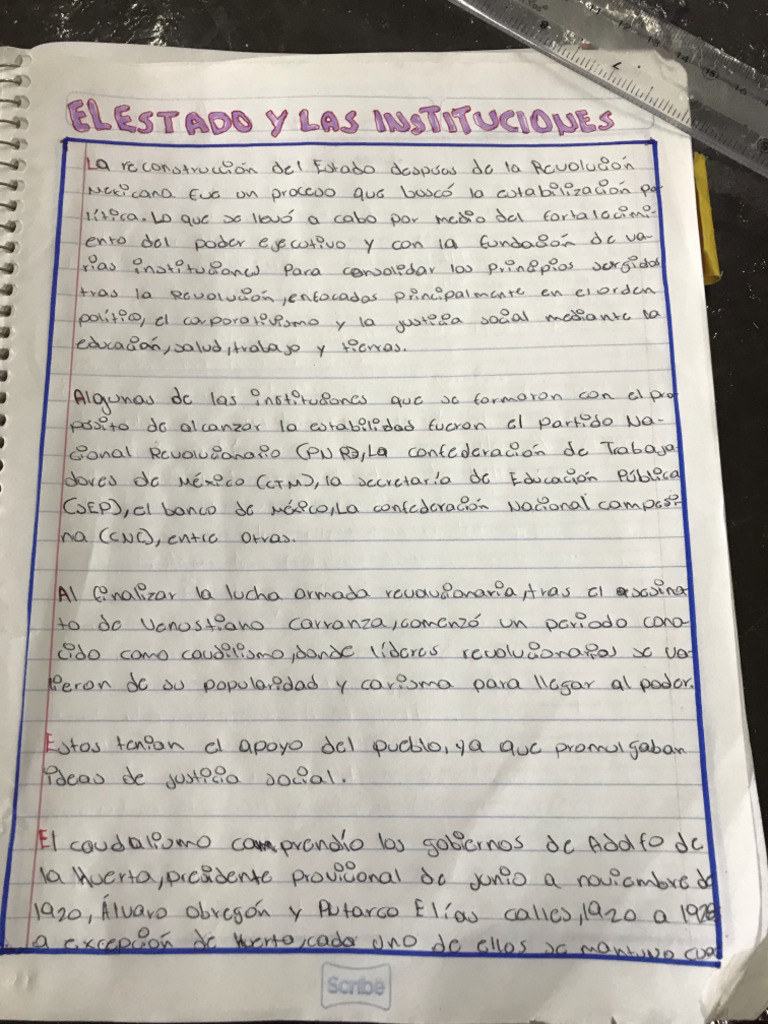 EL ESTADO Y LAS INSTITUCIONES
La reconstrucción del Estado despues de la Revolución
Mexicana. Fue un proceso que buscó la estabilización po-
lítica. Lo que se llevó a cabo por medio del fortalecimi-
ento del poder ejecutivo y con la fundación de va-
rias instituciones Para consolidar los principios surgidos
tras la Revolución, enfocados principalmente en el orden
político, el corporativismo y la justicia social mediante la
educación, salud, trabajo y tierras.
Algunas de las instituciones que se formaron con el pro
posito de alcanzar la estabilidad fueron el Partido Na-
cional Revolucionario (PNR), La confederación de Trabaja-
dores de México (CTM), la secretaría de Educación Pública
(SEP), el banco de México, La confederación Nacional campesi-
na (CNC), entre otras.
Al finalizar la lucha armada revolucionaria, tras el asesina-
to de Venustiano Carranza, comenzó un periodo cono-
cido como caudilismo, donde líderes revolucionarios se va-
lieron de su popularidad y carisma para llegar al poder.
Estos tenian el apoyo del pueblo, ya que promulgaban
ideas de justicia social.
El caudalismo comprendío los gobiernos de Adolfo de
la Huerta, presidente provicional de junio a noviembre de
1920, Álvaro Obregón y Plutarco Elías calles, 1920 a 1928
a excepción de Huerta, cada uno de ellos se mantuvo
Scribe
12 13 14 15 16